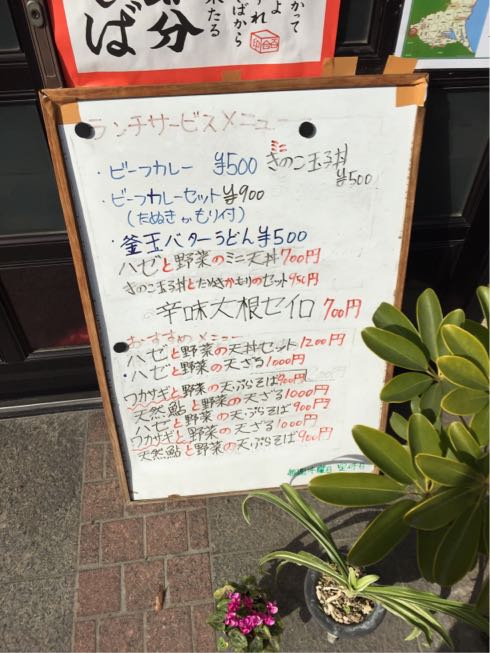 かって
よ
すれ
ばから
来たる
節分
そば
ランチサービスメニュー
・ビーフカレー ¥500
ミニ
きのこ玉子丼
¥500
・ビーフカレーセット ¥900
(たぬきかもり付)
・釜玉バターうどん ¥500
ハゼと野菜のミニ天丼 700円
きのこ玉子丼とたぬきかもりのセット 950円
辛味大根セイロ 700円
おすすめメニュー
ハゼと野菜の天丼セット 1200円
・ハゼと野菜の天ざる 1000円
ワカサギと野菜の天ぷらそば 900円
天然鮎と野菜の天ざる 1000円
ハゼと野菜の天ぷらそば 900円
ワカサギと野菜の天ざる 1000円
天然鮎と野菜の天ぷらそば 900円